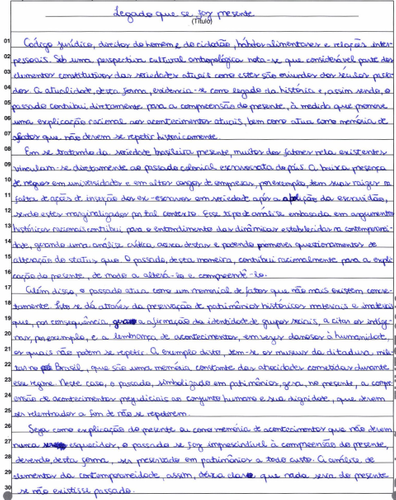 Legado que se faz presente
(Título)
01 Código jurídico, direitos do homem e do cidadão, hábitos alimentares e relações inter-
02 pessoais. Sob uma perspectiva cultural antropológica nota-se que considerável parte dos
03 elementos constitutivos das sociedades atuais como estes são oriundos dos séculos passa-
04 dos. A atualidade, desta forma, evidencia-se como legado da história e, assim sendo, o
05 passado contribui diretamente para a compreensão do presente, à medida que promove
06 uma explicação racional aos acontecimentos atuais, bem como atua como memória de
07 fatos que não devem se repetir historicamente.
08 Em se tratando da sociedade brasileira presente, muitos dos fatores nela existentes
09 vinculam-se diretamente ao passado colonial escravocrata do país. A baixa presença
10 de negros em universidades e em altos cargos de empresas, por exemplo, tem suas raízes na
11 falta de ações de inserção dos ex-escravos em sociedade após a abolição da escravidão,
12 sendo estes marginalizados por tal contexto. Esse tipo de análise embasada em argumentos
13 históricos racionais contribui para o entendimento das dinâmicas estabelecidas na contemporanei-
14 dade, gerando uma análise crítica acerca destas e podendo promover questionamentos de
15 alteração do status quo. O passado, desta maneira, contribui racionalmente para a expli-
16 cação do presente, de modo a alterá-lo e compreendê-lo.
17 Além disso, o passado atua como um memorial de fatos que não mais existem conse-
18 tamente. Isto se dá através da preservação de patrimônios históricos materiais e imateriais
19 que, por consequência, a afirmação da identidade de grupos sociais, a citar os indíge-
20 nas, por exemplo, e a lembrança de acontecimentos, em vezes danosos à humanidade,
21 os quais não podem se repetir. A exemplo disto, tem-se os museus da ditadura mili-
22 tar no Brasil, que são uma memória constante das atrocidades cometidas durante
23 esse regime. Neste caso, o passado, simbolizado em patrimônios, gera, no presente, a compre-
24 ensão de acontecimentos prejudiciais ao conjunto humano e sua dignidade, que devem
25 ser relembrados a fim de não se repetirem.
26 Seja como explicação do presente ou como memória de acontecimentos que não devem
27 nunca ser esquecidos, o passado se faz imprescindível à compreensão do presente,
28 devendo, desta forma, ser preservado em patrimônios a todo custo. A análise de
29 elementos da contemporaneidade, assim, deixa claro que nada seria do presente
30 se não existisse passado.